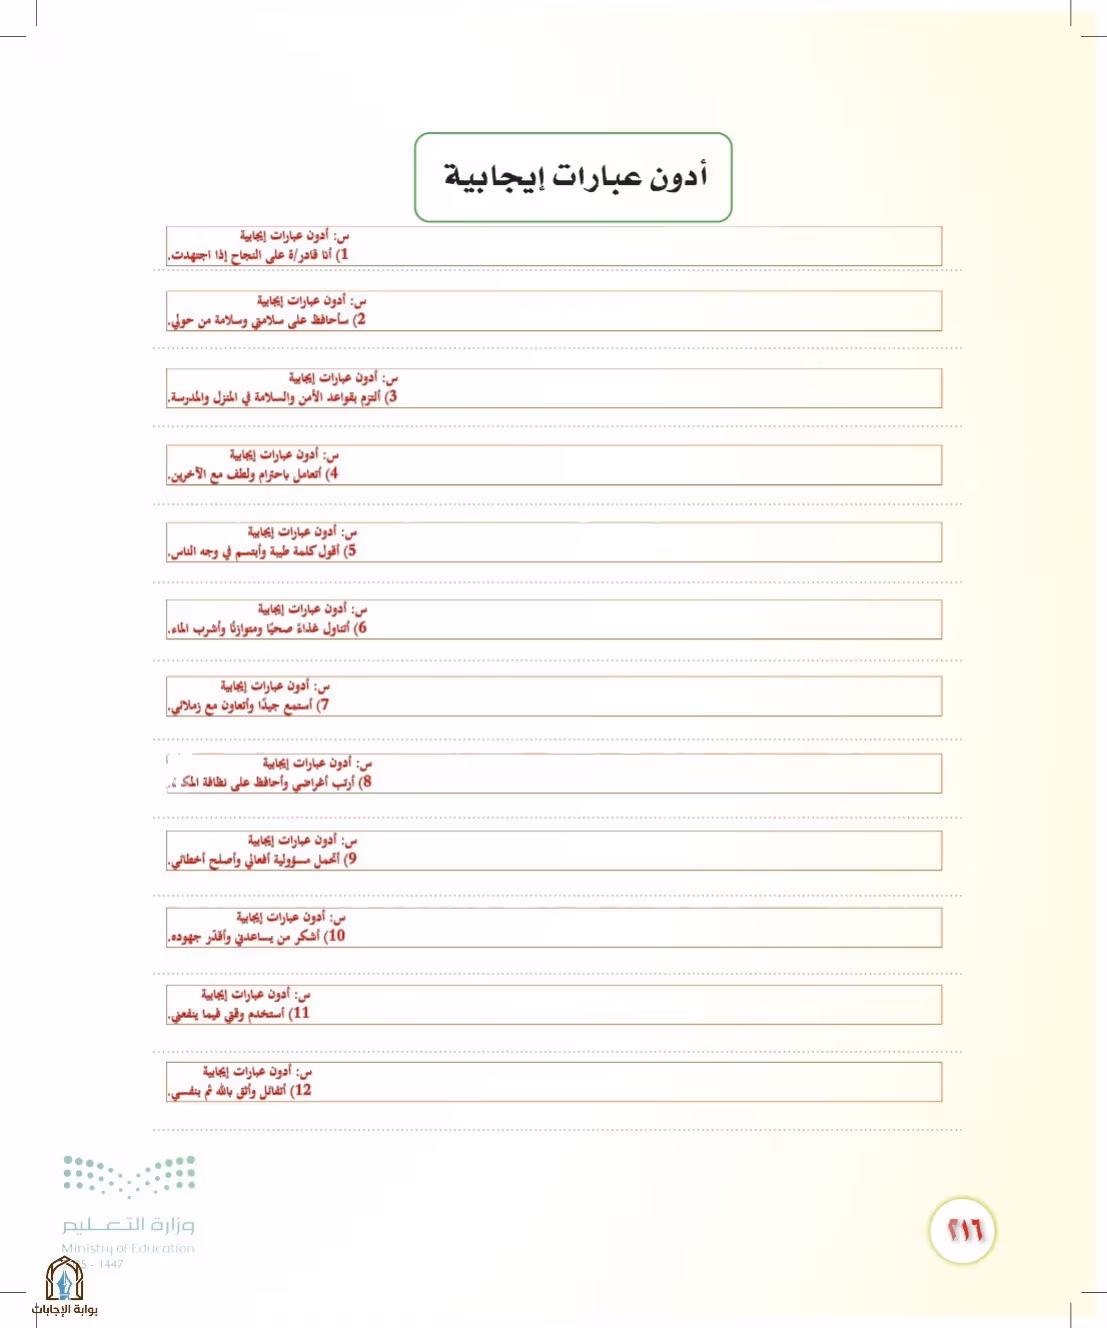 أدون عبارات إيجابية
س: أدون عبارات إيجابية
1) أنا قادر/ة على النجاح إذا اجتهدت.
س: أدون عبارات إيجابية
2) سأحافظ على سلامتي وسلامة من حولي.
س: أدون عبارات إيجابية
3) ألتزم بقواعد الأمن والسلامة في المنزل والمدرسة.
س: أدون عبارات إيجابية
4) أتعامل باحترام ولطف مع الآخرين.
س: أدون عبارات إيجابية
5) أقول كلمة طيبة وأبتسم في وجه الناس.
س: أدون عبارات إيجابية
6) أتناول غذاءً صحيًا ومتوازنًا وأشرب الماء.
س: أدون عبارات إيجابية
7) أستمع جيدًا وأتعاون مع زملائي.
س: أدون عبارات إيجابية
8) أرتب أغراضي وأحافظ على نظافة
س: أدون عبارات إيجابية
9) أتحمل مسؤولية أفعالي وأصلح أخطائي.
س: أدون عبارات إيجابية
10) أشكر من يساعدني وأقدّر جهوده.
س: أدون عبارات إيجابية
11) أستخدم وقتي فيما ينفعني.
س: أدون عبارات إيجابية
12) أتفائل وأثق بالله ثم بنفسي.
وزارة التعليم
Ministry of Education
- 1447
٢١٦
بوابة الإجابات